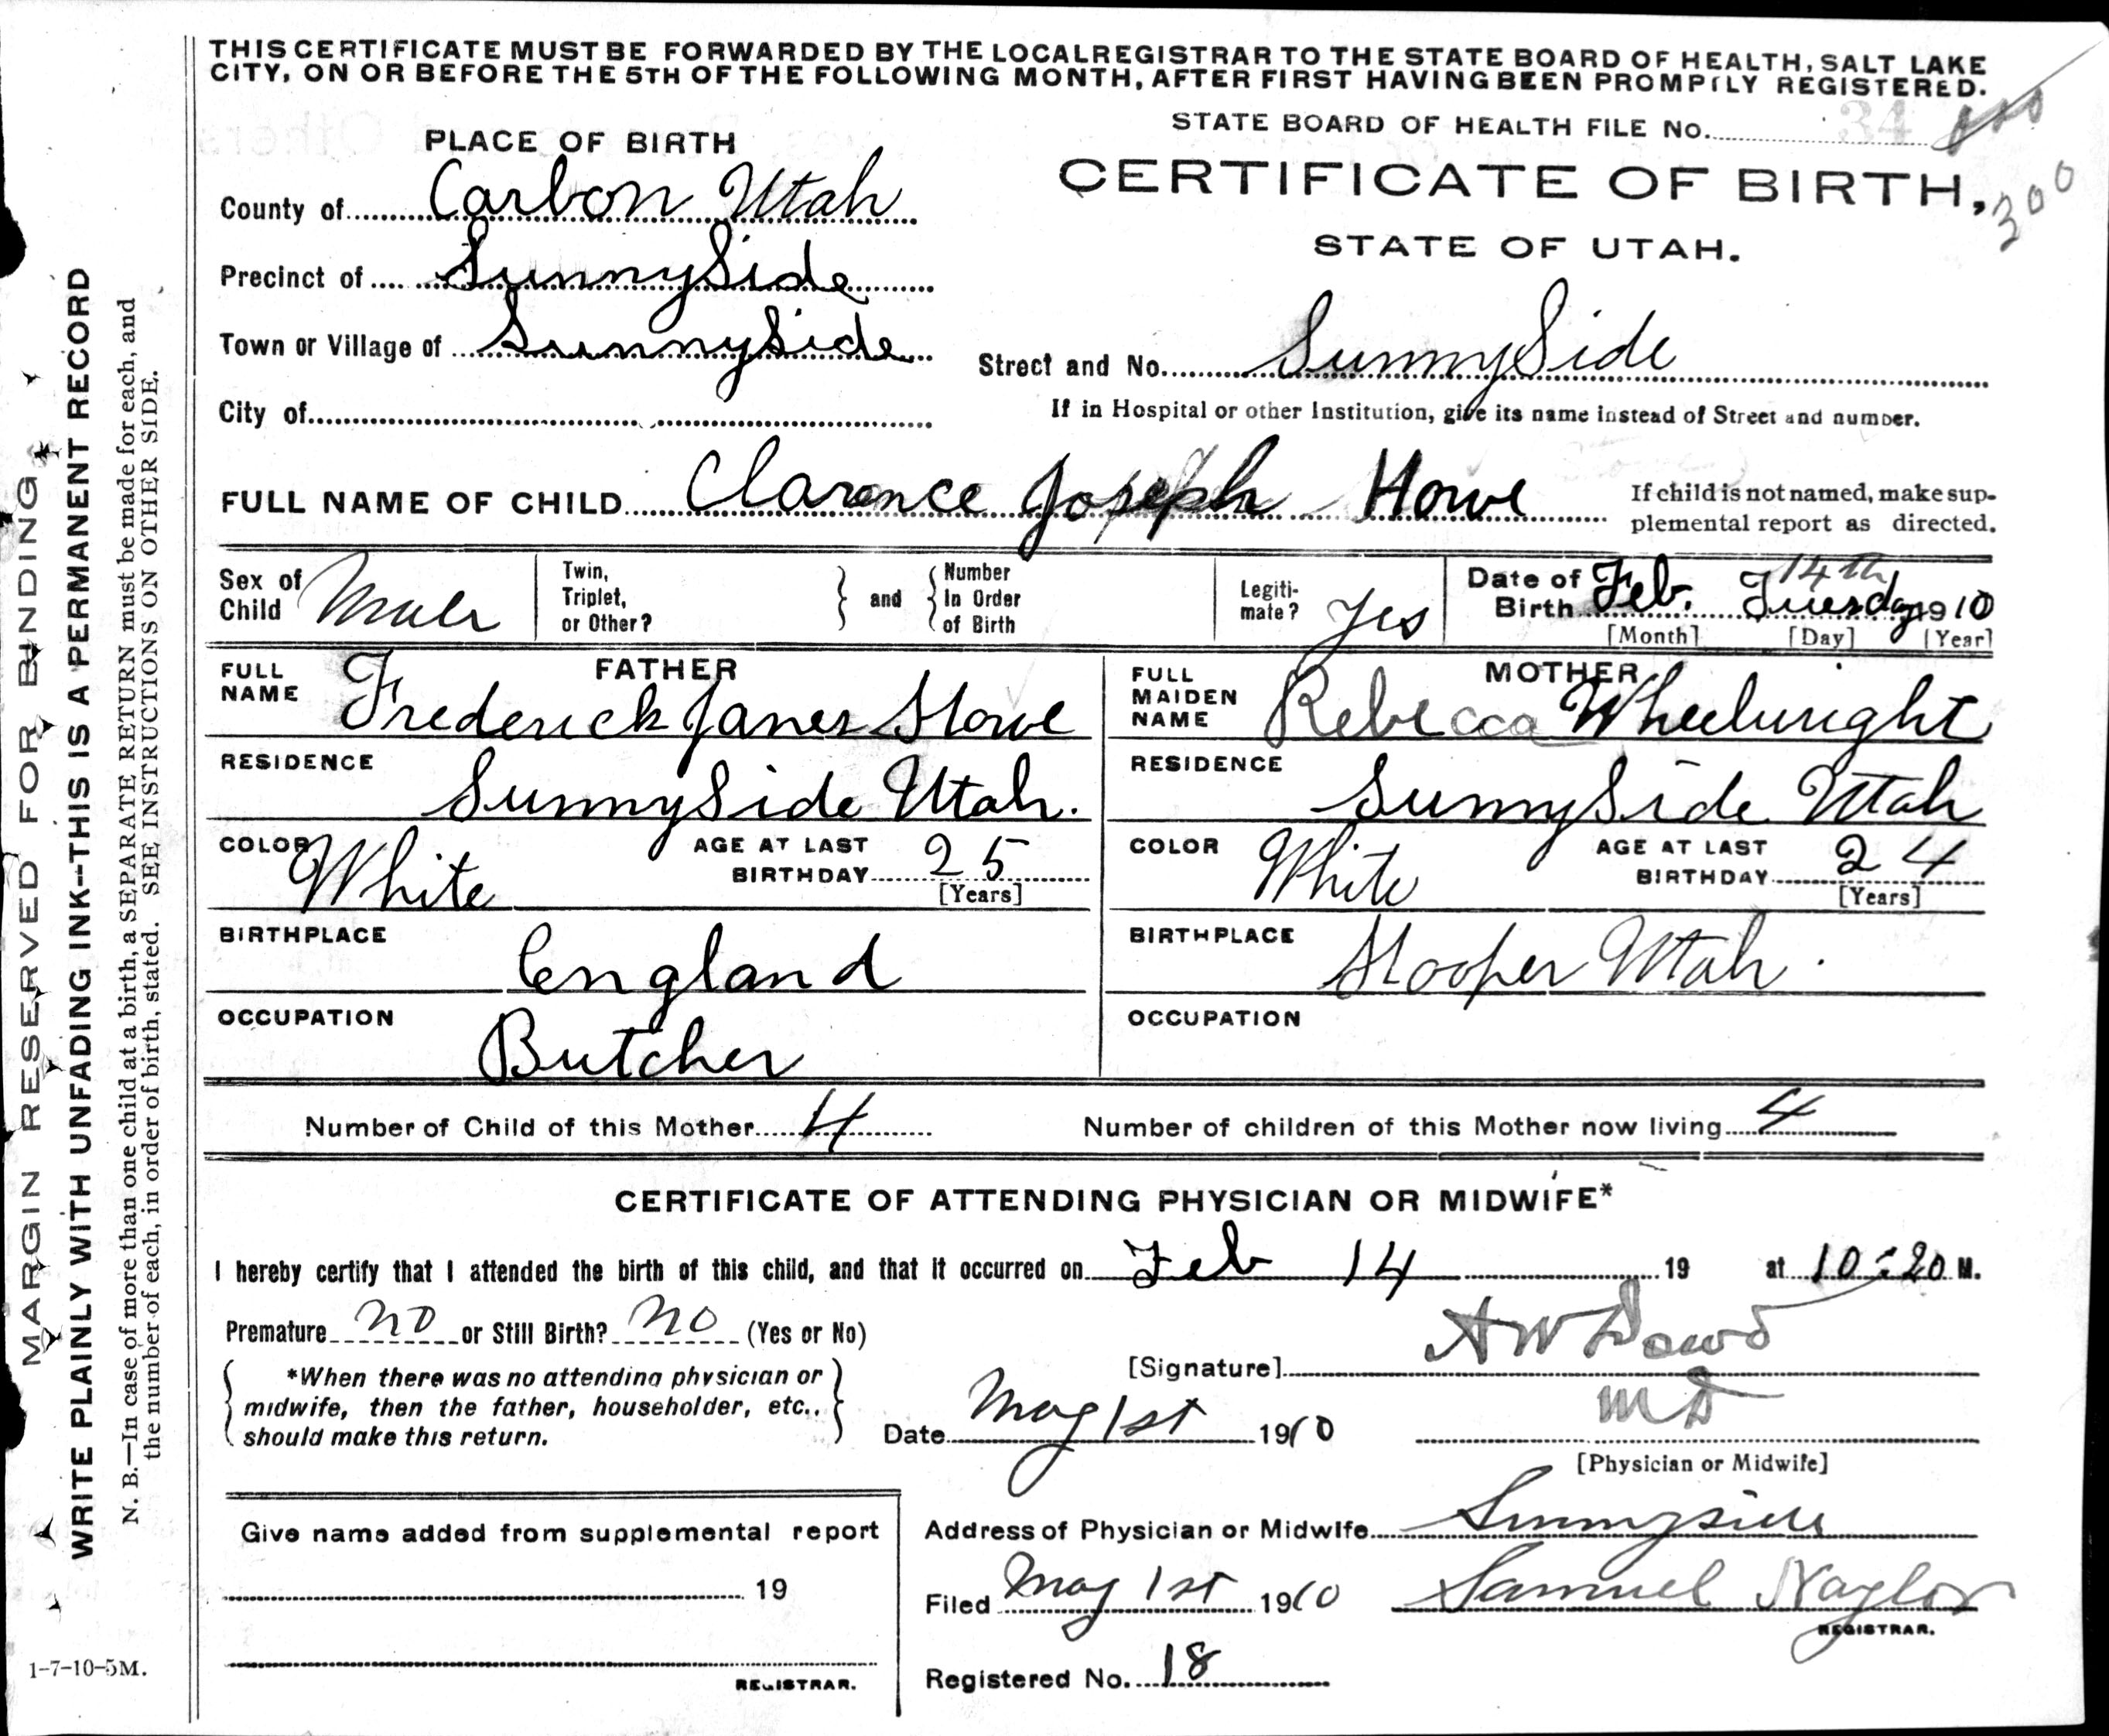 THIS CERTIFICATE MUST BE FORWARDED BY THE LOCAL REGISTRAR TO THE STATE BOARD OF HEALTH, SALT LAKE
CITY, ON OR BEFORE THE 5TH OF THE FOLLOWING MONTH, AFTER FIRST HAVING BEEN PROMPTLY REGISTERED.
STATE BOARD OF HEALTH FILE NO. 34
300
PLACE OF BIRTH
CERTIFICATE OF BIRTH,
STATE OF UTAH.
County of Carbon Utah
Precinct of SunnySide
Town or Village of SunnySide
Street and No. SunnySide
City of
If in Hospital or other Institution, give its name instead of Street and number.
FULL NAME OF CHILD Clarence Joseph Howe
If child is not named, make sup-
plemental report as directed.
Sex of Child Male
Twin, Triplet, or Other?
and
Number In Order of Birth
Legiti-mate? Yes
Date of Birth Feb. 14th Tuesday 1910
[Month] [Day] [Year]
FATHER
FULL NAME Frederick James Howe
RESIDENCE
SunnySide Utah.
COLOR White AGE AT LAST BIRTHDAY 25
[Years]
BIRTHPLACE
England
OCCUPATION
Butcher
MOTHER
FULL MAIDEN NAME Rebecca Wheelwright
RESIDENCE
SunnySide Utah
COLOR White AGE AT LAST BIRTHDAY 24
[Years]
BIRTHPLACE
Hooper Utah.
OCCUPATION
Number of Child of this Mother 4 Number of children of this Mother now living 4
CERTIFICATE OF ATTENDING PHYSICIAN OR MIDWIFE*
I hereby certify that I attended the birth of this child, and that it occurred on Feb 14 19 at 10:20 M.
Premature no or Still Birth? no (Yes or No)
*When there was no attending physician or
midwife, then the father, householder, etc.,
should make this return.
[Signature] A W Dowd
M D
Date May 1st 1910
[Physician or Midwife]
Give name added from supplemental report
19
REGISTRAR.
Address of Physician or Midwife Sunnyside
Filed May 1st 1910 Samuel Naylor
REGISTRAR.
Registered No. 18
MARGIN RESERVED FOR BINDING
WRITE PLAINLY WITH UNFADING INK--THIS IS A PERMANENT RECORD
N. B.—In case of more than one child at a birth, a SEPARATE RETURN must be made for each, and
the number of each, in order of birth, stated. SEE INSTRUCTIONS ON OTHER SIDE.
1-7-10-5M.